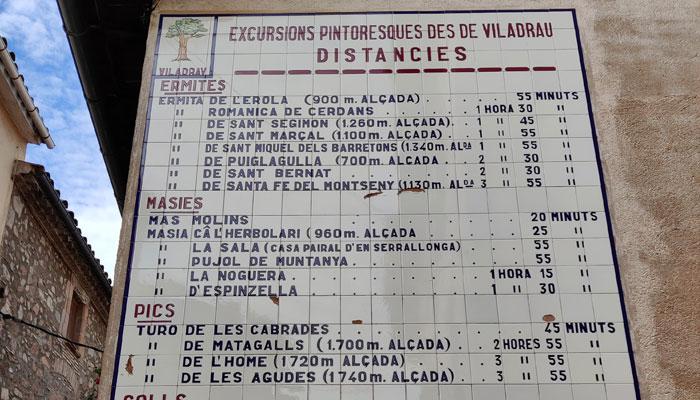 EXCURSIONS PINTORESQUES DES DE VILADRAU
DISTANCIES
VILADRAU
ERMITES
ERMITA DE L'EROLA (900 m. ALÇADA) . . . . 55 MINUTS
" ROMANICA DE CERDANS . . . . 1 HORA 30 "
" DE SANT SEGIMON (1.260 m. ALÇADA) . . . . 1 " 45 "
" DE SANT MARÇAL (1.100 m. ALÇADA) . . . . 1 " 55 "
" DE SANT MIQUEL DELS BARRETONS (1.340 m. ALDA 1 " 55 "
" DE PUIGLAGULLA (700 m. ALÇADA . . . 2 " 30 "
" DE SANT BERNAT . . . . 2 " 30 "
" DE SANTA FE DEL MONTSENY (1130 m. ALDA 3 " 55 "
MASIES
MAS MOLINS . . . . 20 MINUTS
MASIA CÂL'HERBOLARI (960 m. ALÇADA . . . . 25 "
" LA SALA (CASA PAIRAL D'EN SERRALLONGA) . . . 55 "
" PUJOL DE MUNTANYA . . . . 55 "
" LA NOGUERA . . . . 1 HORA 15 "
" D'ESPINZELLA . . . . 1 " 30 "
PICS
TURO DE LES CABRADES . . . . 45 MINUTS
" DE MATAGALLS (1.700 m. ALÇADA) . . . . 2 HORES 55 "
" DE L'HOME (1720 m ALÇADA) . . . . 3 " 55 "
" DE LES AGUDES (1740 m. ALÇADA) . . . . 3 " 55 "
COLLS